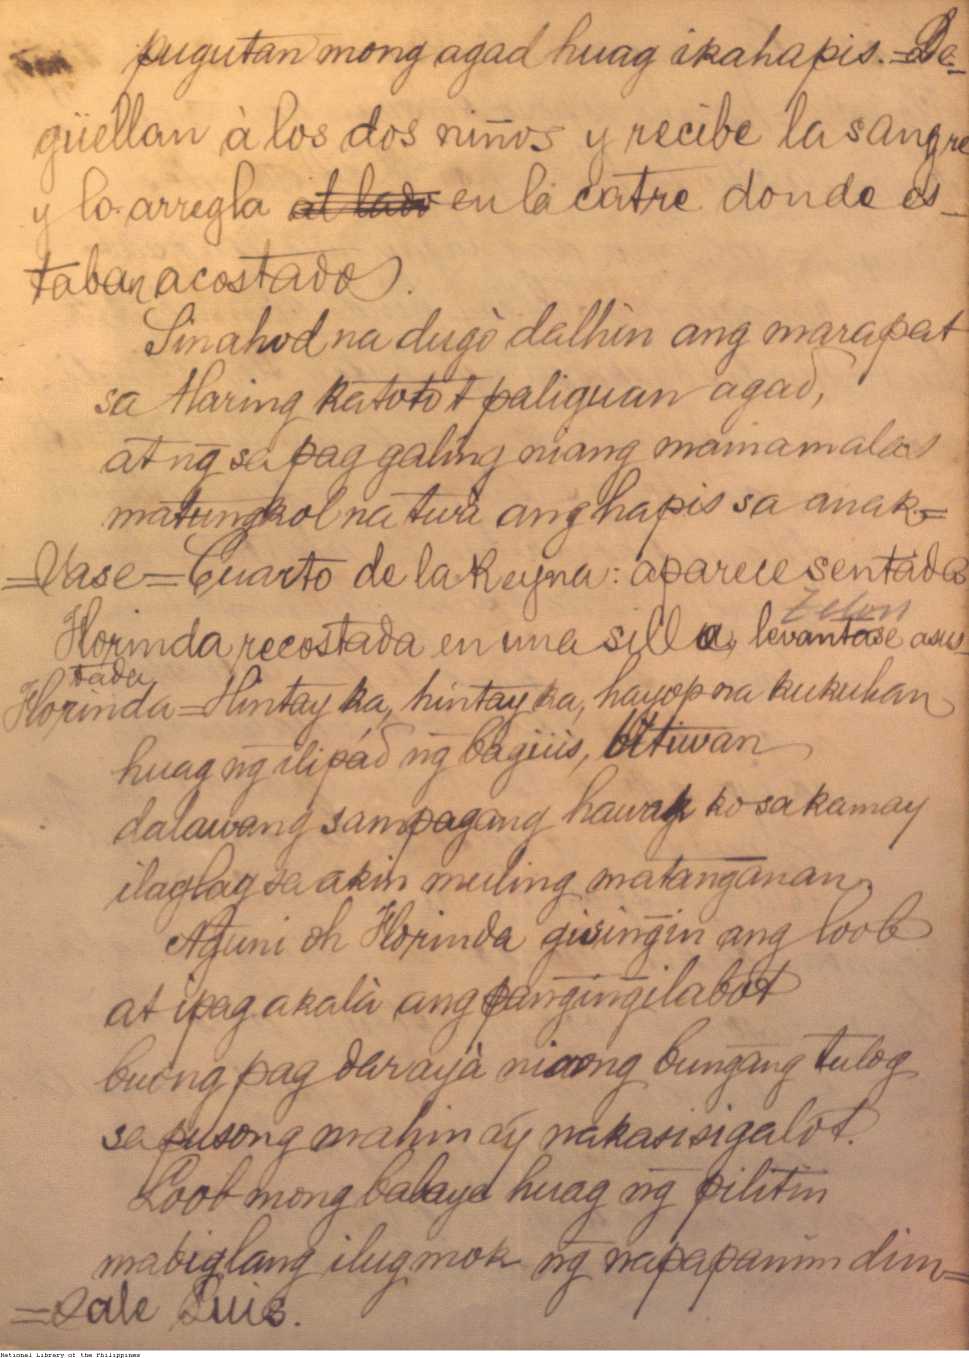 pugutan mong agad huag ikahapis.=De-
güellan à los dos niños y recibe la sangre
y lo arregla al lado en la catre donde es-
taban acostados.
Sinahod na dugò dalhin ang marapat
sa Haring katoto't paliguan agad,
at ng̃ sa pag galing niang mainamalas
matungkol na twà ang hapis sa anak.=
=Vase=Cuarto de la Reyna: aparece sentada
Telon
Florinda recostada en una silla, levantase asus-
tada
Florinda=Hintay ka, hintay ka, hayop na kukuhan
huag ng̃ ilipád ng̃ baguiis, bitiwan
dalawang sampagang hawak ko sa kamay
ilaglag sa akin muling matang̃anan.
Aguni oh Florinda gising̃in ang loob
at ipag akalà ang pang̃ing̃ilabot
buong pag darayà niaong bung̃ang tulog
sa pusong mahin ay nakasisigalot.
Loob mong balaye huag ng̃ pilitin
mabiglang ilugmok ng̃ napapanimdim=
=Sale Luis.
National Library of the Philippines